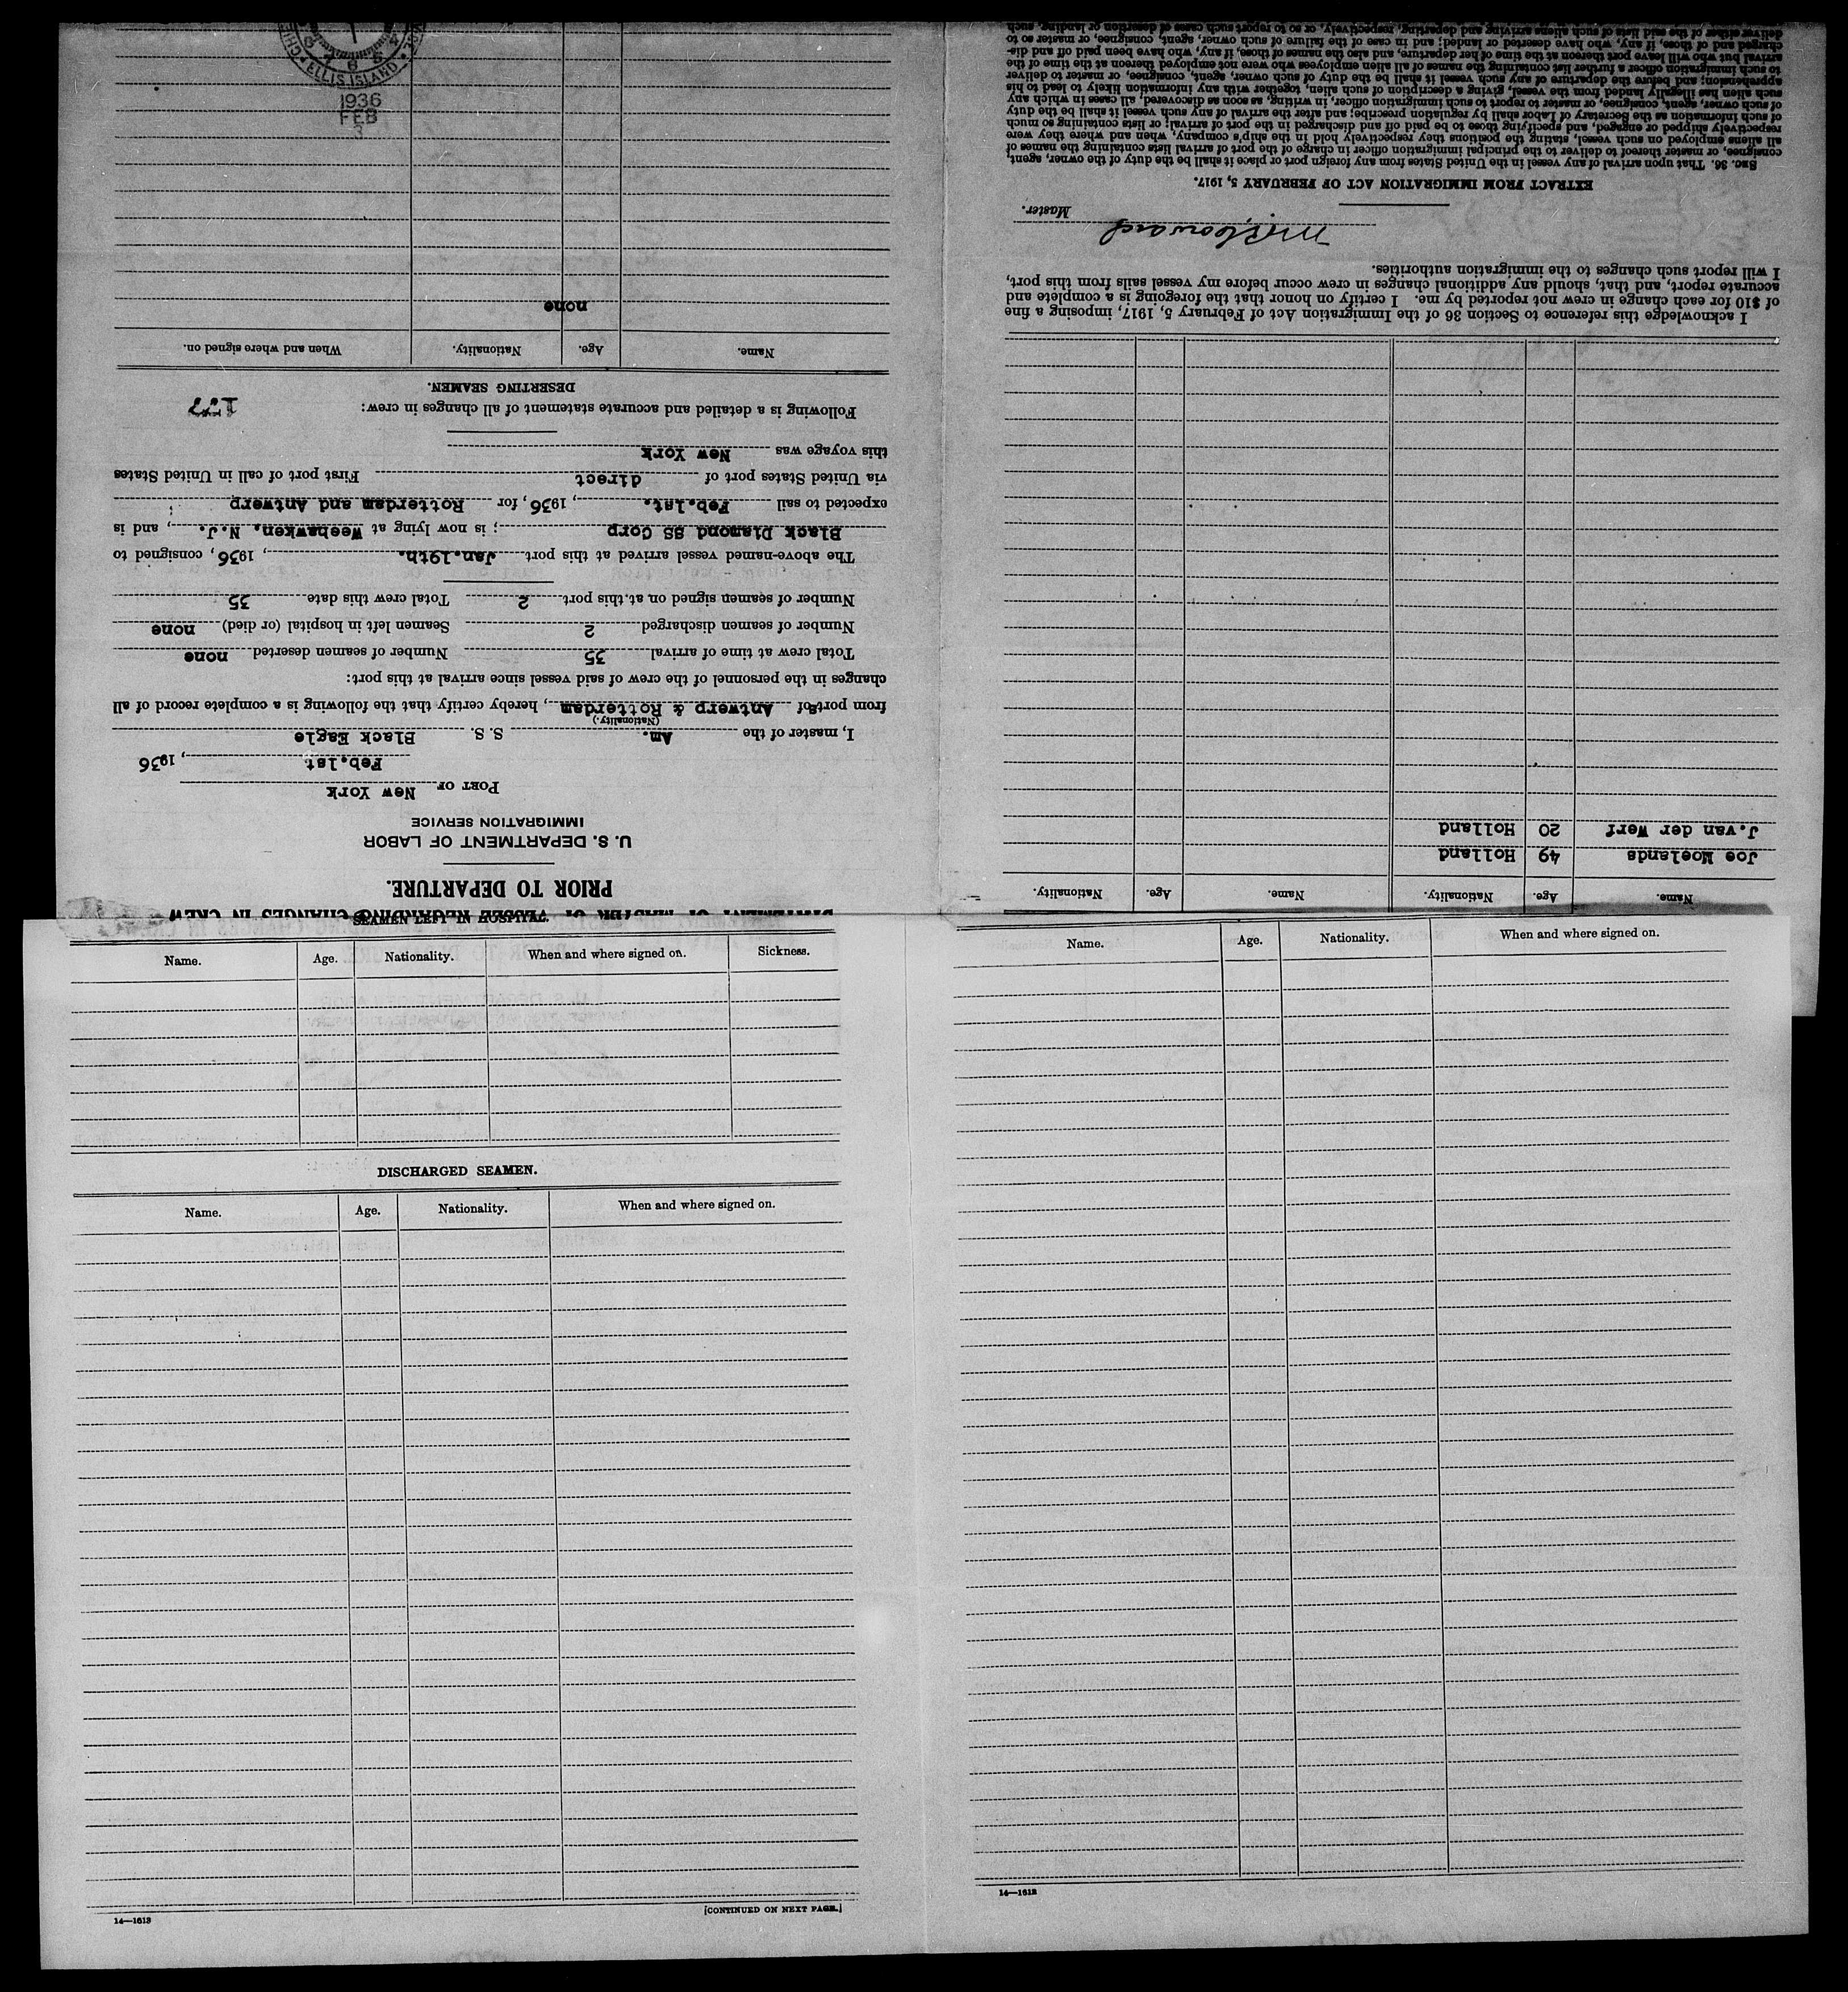 STATEMENT OF MASTER OF VESSEL REGARDING CHANGES IN CREW
PRIOR TO DEPARTURE.
U. S. DEPARTMENT OF LABOR
IMMIGRATION SERVICE
PORT OF New York
Feb.1st, 1936
I, master of the Am. S. S. Black Eagle
(Nationality.)
from ports of Antwerp & Rotterdam, hereby certify that the following is a complete record of all
changes in the personnel of the crew of said vessel since arrival at this port:
Total crew at time of arrival 35 Number of seamen deserted none
Number of seamen discharged 2 Seamen left in hospital (or died) none
Number of seamen signed on at this port 2 Total crew this date 35
The above-named vessel arrived at this port Jan.19th., 1936, consigned to
Black Diamond SS Corp; is now lying at Weehawken. N.J., and is
expected to sail Feb.1st., 1936, for Rotterdam and Antwerp
via United States port of direct First port of call in United States
this voyage was New York
Following is a detailed and accurate statement of all changes in crew:
DESERTING SEAMEN.
Name. Age. Nationality. When and where signed on.
none
1936
FEB
3
ELLIS ISLAND
Name. Age. Nationality. Name. Age. Nationality.
Joe Moelands 49 Holland
J.van der Werf 20 Holland
I acknowledge this reference to Section 36 of the Immigration Act of February 5, 1917, imposing a fine
of $10 for each change in crew not reported by me. I certify on honor that the foregoing is a complete and
accurate report, and that, should any additional changes in crew occur before my vessel sails from this port,
I will report such changes to the immigration authorities.
Master.
EXTRACT FROM IMMIGRATION ACT OF FEBRUARY 5, 1917.
SEC. 36. That upon arrival of any vessel in the United States from any foreign port or place it shall be the duty of the owner, agent,
consignee, or master thereof to deliver to the principal immigration officer in charge of the port of arrival lists containing the names of
all aliens employed on such vessel, stating the positions they respectively hold in the ship's company, when and where they were
respectively shipped or engaged, and specifying those to be paid off and discharged in the port of arrival; or lists containing so much
of such information as the Secretary of Labor shall by regulation prescribe; and after the arrival of any such vessel it shall be the duty
of such owner, agent, consignee, or master to report to such immigration officer, in writing, as soon as discovered, all cases in which any
such alien has illegally landed from the vessel, giving a description of such alien, together with any information likely to lead to his
apprehension; and before the departure of any such vessel it shall be the duty of such owner, agent, consignee, or master to deliver
to such immigration officer a further list containing the names of all alien employees who were not employed thereon at the time of the
arrival but who will leave port thereon at the time of her departure, and also the names of those, if any, who have been paid off and dis-
charged and of those, if any, who have deserted or landed; and in case of the failure of such owner, agent, consignee, or master so to
deliver either of the said lists of such aliens arriving and departing, respectively, or so to report such cases of desertion or landing, such
SEAMEN LEFT IN HOSPITAL.
Name. Age. Nationality. When and where signed on. Sickness.
DISCHARGED SEAMEN.
Name. Age. Nationality. When and where signed on.
14—1613
[CONTINUED ON NEXT PAGE.]
Name. Age. Nationality. When and where signed on.
14—1613